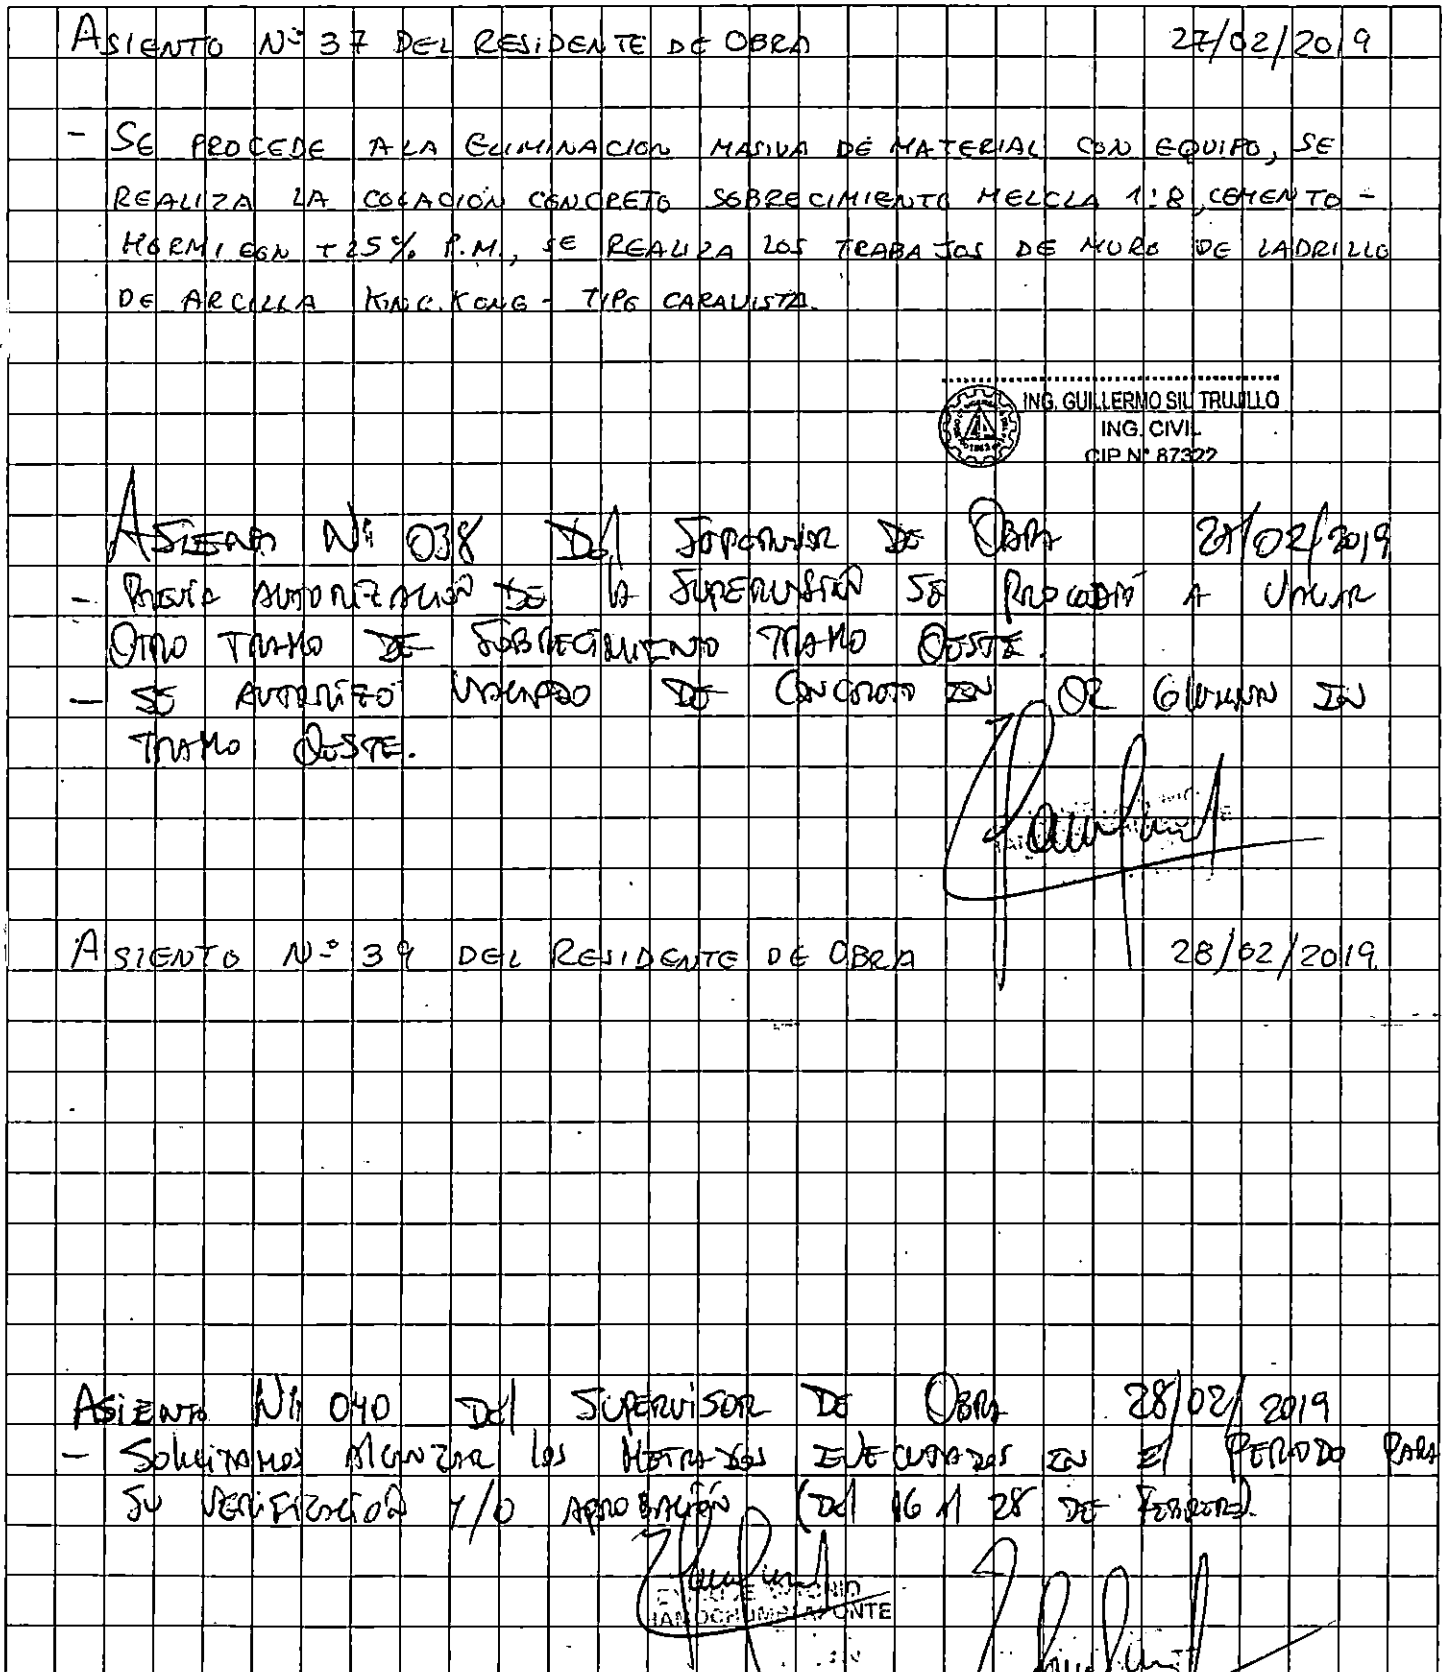 ASIENTO Nº 37 DEL RESIDENTE DE OBRA 27/02/2019
- SE PROCEDE A LA ELIMINACION MASIVA DE MATERIAL CON EQUIPO, SE
REALIZA LA COLACIÓN CONCRETO SOBRECIMIENTO MELCLA 1:8, CEMENTO -
HORMIGON + 25% P.M., SE REALIZA LOS TRABAJOS DE MURO DE LADRILLO
DE ARCILLA KING KONG - TIPO CARAVISTA.
ING. GUILLERMO SIU TRUJILLO
ING. CIVIL
CIP Nº 87322
ASIENTO Nº 038 Del SUPERVISOR DE OBRA 27/02/2019
- PREVIA AUTORIZACION DE LA SUPERVISIÓN SE PROCEDIÓ A VACIAR
OTRO TRAMO DE SOBRECIMIENTO TRAMO OESTE.
- SE AUTORIZÓ VACIADO DE CONCRETO EN 02 EN
TRAMO OESTE.
ASIENTO Nº 39 DEL RESIDENTE DE OBRA 28/02/2019.
ASIENTO Nº 040 Del SUPERVISOR DE OBRA 28/02/2019
- SOLICITAMOS ALCANZAR los METRADOS EJECUTADOS EN El PERIODO PARA
SU VERIFICACIÓN Y/O APROBACIÓN (Del 16 Al 28 DE FEBRERO).